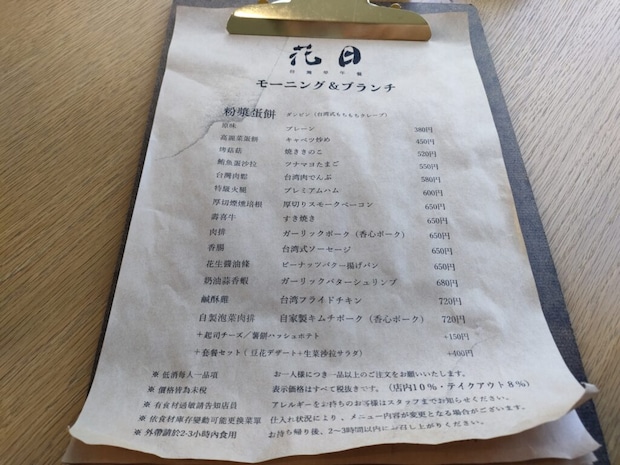 花日
台灣早午餐
モーニング&ブランチ
粉漿蛋餅 ダンピン（台湾式もちもちクレープ）
原味 プレーン 380円
高麗菜蛋餅 キャベツ炒め 450円
烤菇菇 焼ききのこ 520円
鮪魚蛋沙拉 ツナマヨたまご 550円
台灣肉鬆 台湾肉でんぶ 580円
特級火腿 プレミアムハム 600円
厚切煙燻培根 厚切りスモークベーコン 650円
壽喜牛 すき焼き 650円
肉排 ガーリックポーク（香心ポーク） 650円
香腸 台湾式ソーセージ 650円
花生醬油條 ピーナッツバター揚げパン 650円
奶油蒜香蝦 ガーリックバターシュリンプ 680円
鹹酥雞 台湾フライドチキン 720円
自製泡菜肉排 自家製キムチポーク（香心ポーク） 720円
+起司チーズ／薯餅ハッシュポテト +150円
+套餐セット（豆花デザート+生菜沙拉サラダ） +400円
※ 低消每人一品項 お一人様につき一品以上のご注文をお願いします。
※ 價格皆為未稅 表示価格はすべて税抜きです。（店内10%・テイクアウト8%）
※ 有食材過敏請告知店員 アレルギーをお持ちのお客様はスタッフまでお知らせください。
※ 依食材庫存變動可能更換菜單 仕入れ状況により、メニュー内容が変更となる場合がございます。
※ 外帶請於2-3小時內食用 お持ち帰り後、2～3時間以内にお召し上がりください。